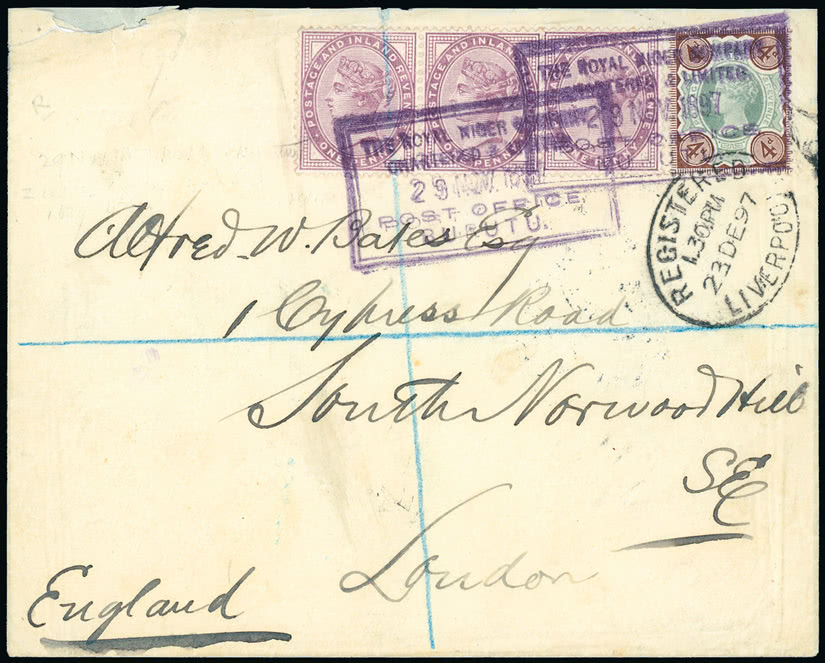 POSTAGE AND INLAND REVENUE
ONE PENNY
POSTAGE AND INLAND REVENUE
ONE PENNY
POSTAGE AND INLAND REVENUE
ONE PENNY
4D 4D
4D 4D
THE ROYAL NIGER COMPANY
CHARTERED & LIMITED
29 NOV. 1897
POST OFFICE
THE ROYAL NIGER COMPANY
CHARTERED & LIMITED
29 NOV.
POST OFFICE
BURUTU.
REGISTERED
1.30PM
23 DE 97
LIVERPOOL
Alfred. W. Bates Esq
1 Cypress Road
South Norwood Hill
SE
London
England
R